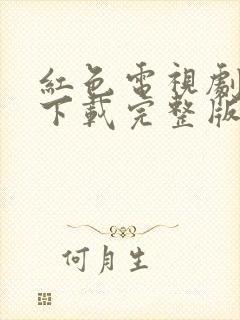 紅色電視劇
下載完整版
何月生